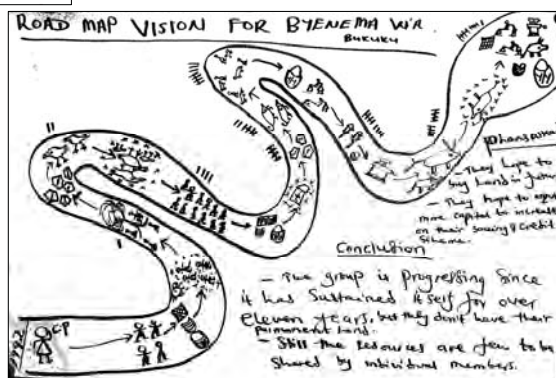 ROAD MAP VISION FOR BYENEMA W/R.
BUKUKU
CP
1992
- They hope to
buy land in
- They hope to
more capital to
on their saving & Credit
Scheme.
Conclusion
- The group is Progressing Since
it has Sustained itself for over
eleven years, but they don't have their
permanent land.
- Still the resources are few to be
Shared by individual members.